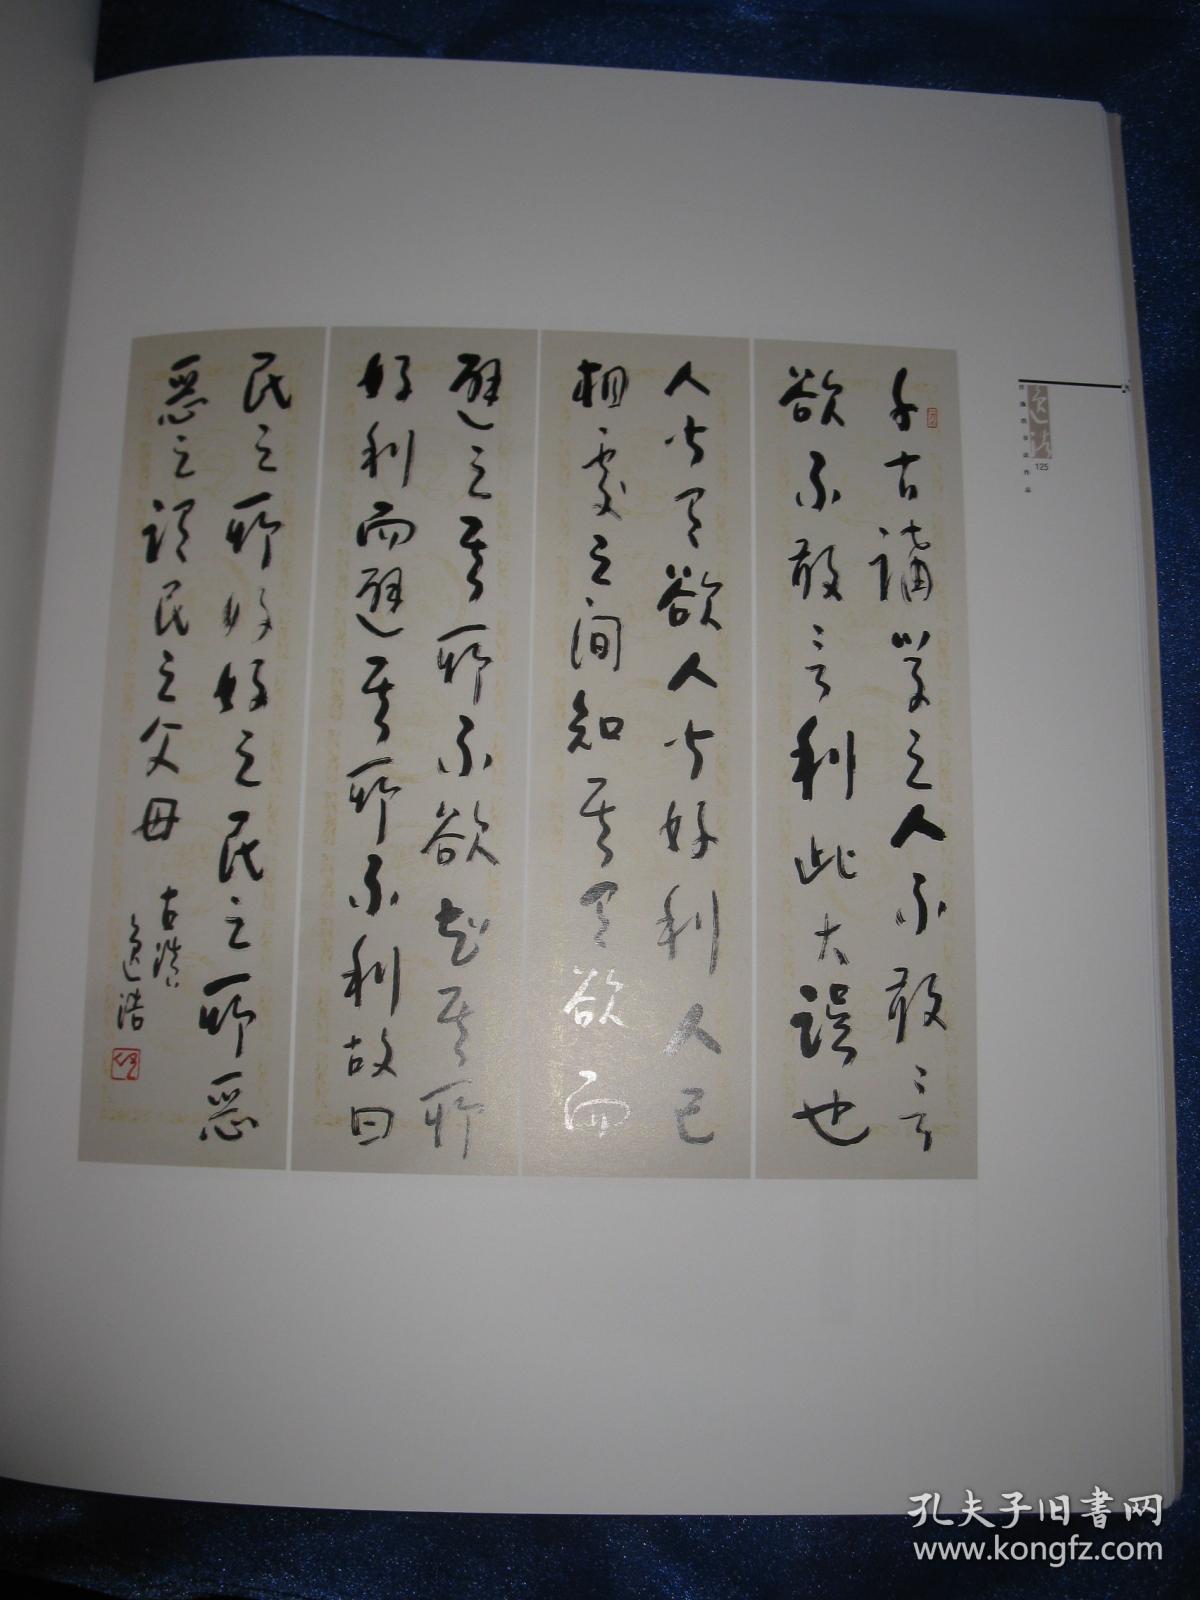 千古講學之人不敢言
欲不敢言利此大誤也
人皆有欲人皆好利人己
相處之间知其有欲而
避之其所不欲知其所
好利而避其所不利故曰
民之所好好之民之所惡
惡之謂民之父母
古滇
逸浩
逸浩
125
孔夫子旧書网
www.kongfz.com